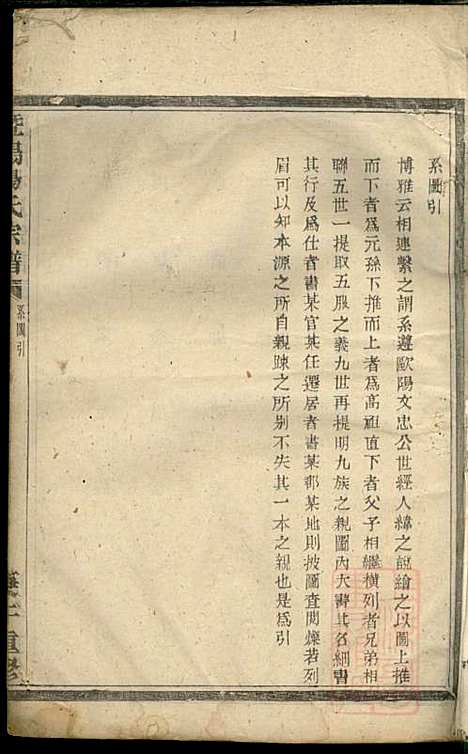 系圖引
博雅云相連繫之謂系遵歐陽文忠公世經人緯之說繪之以圖上推
而下者爲元孫下推而上者爲高祖直下者父子相繼橫列者兄弟相
聯五世一提取五服之義九世再提明九族之親圖內大書其名細書
其行及爲仕者書某官某任遷居者書某郡某地則披圖查閱燦若列
眉可以知本源之所自親疎之所別不失其一本之親也是爲引
暨陽楊氏宗譜
系圖引
重修